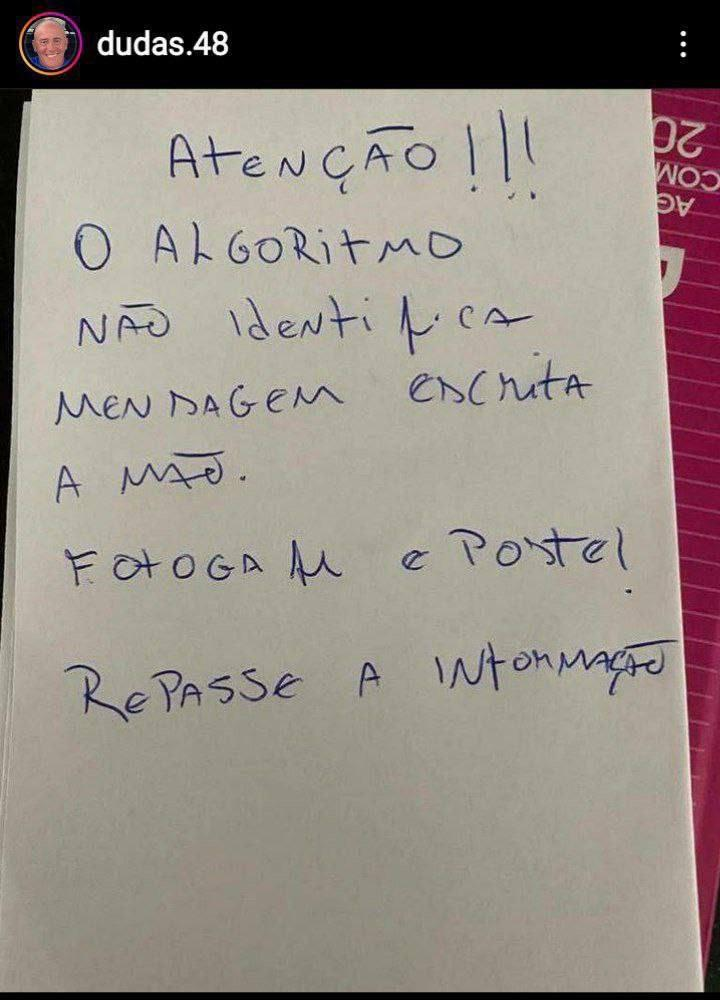 dudas.48
ATENÇÃO!!!
O ALGORITMO
NÃO IdENtifiCA
MENSAGEM ESCRITA
A MÃO.
FOTOGAFE e POSTE!
REPASSE A INFORMAÇÃO
20
COM
AG